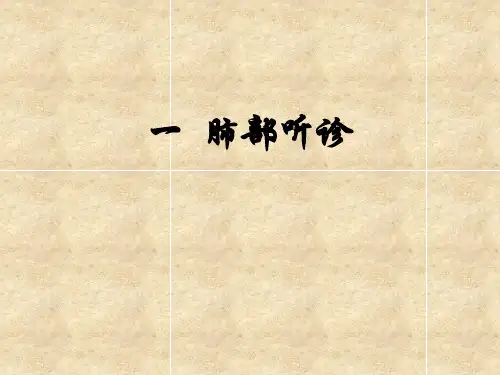 一 肺部听诊